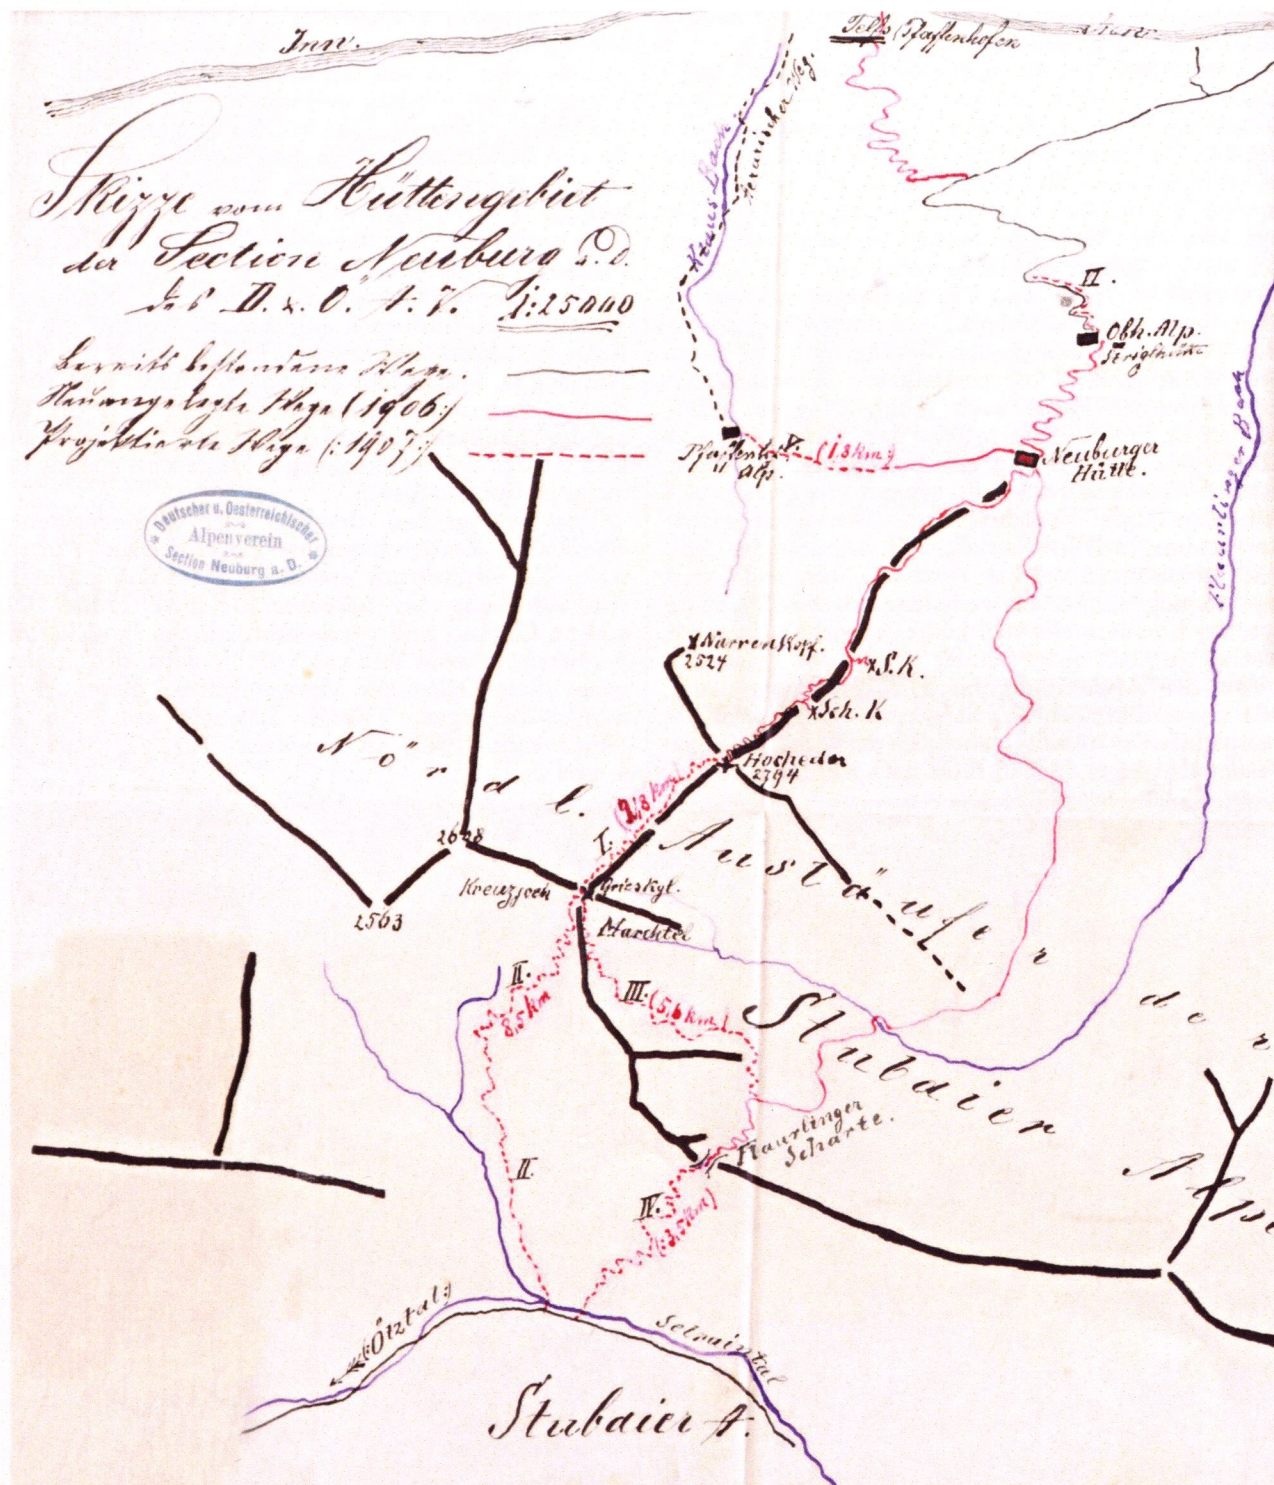 Inn.
Telfs (Pfaffenhofen
Inn
Skizze vom Hüttengebiet
der Section Neuburg a.d.
des D. u. Ö. A. V. 1:25000
Bereits bestandene Wege.
Neuangelegte Wege (1906:)
Projektierte Wege (:1907:)
Deutscher u. Oesterreichischer
Alpenverein
Section Neuburg a. D.
Kraus Bach
Aerarischer Weg.
II.
Obh. Alp.
Pfaffenh.
Alp.
V.
(1,3km:)
Neuburger
Hütte.
Flaurlinger Bach
Narrenkopf.
2524
S.K.
Sch. K
Hocheder
2794
I.
Nördl. Ausläufer der
Stubaier Alpe
2563
Kreuzjoch
Grieskgl.
II.
8,5 km
III. (5,6 km)
Flaurlinger
Scharte.
II.
IV.
(:3,5km)
Ötztal:)
Selraintal
Stubaier A.